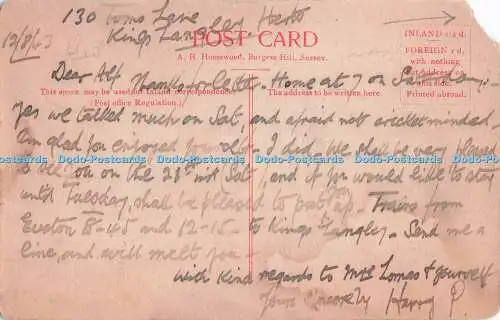 130 Toms Lane
Kings Langley Herts
12/8/43
POST CARD
A. H. Homewood, Burgess Hill, Sussex.
INLAND
FOREIGN
with nothing
but Address on
this side.
Printed abroad.
Dear Alf Thanks for letter. Home at 7 on Saturday.
This space may be used for inland correspondence
(Post office Regulation.)
The address to be written here.
Yes we talked much on Sat, and afraid not cricket minded
Am glad you enjoyed yourself. I did. We shall be very pleased
to see you on the 28th inst Sat, and if you would like to stay
until Tuesday, shall be pleased to put up. Trains from
Euston 8-45 and 12-15 to Kings Langley. Send me a
line, and will meet you
With Kind regards to Mrs Lomas & yourself
Yours Sincerely Harry P.
Dodo-Postcards Dodo-Postcards Dodo-Postcards Dodo-Postcards Dodo-Postcards